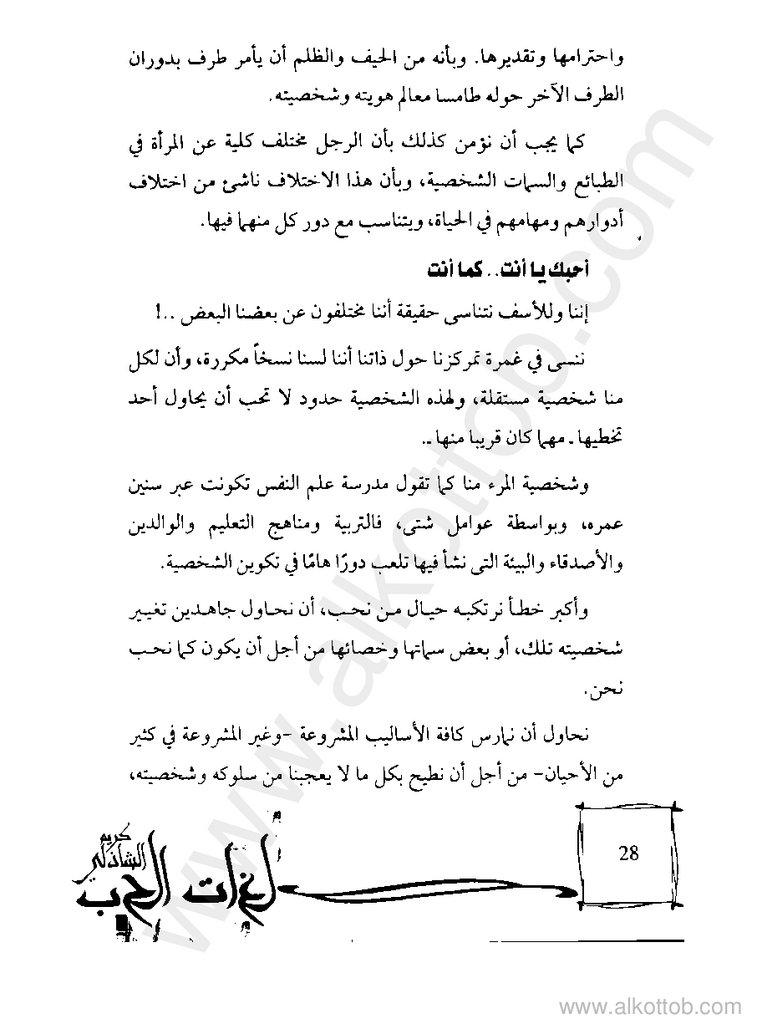 واحترامها وتقديرها. وبأنه من الحيف والظلم أن يأمر طرف بدوران
الطرف الآخر حوله طامسا معالم هويته وشخصيته.
كما يجب أن نؤمن كذلك بأن الرجل مختلف كلية عن المرأة في
الطبائع والسمات الشخصية، وبأن هذا الاختلاف ناشئ من اختلاف
أدوارهم ومهامهم في الحياة، ويتناسب مع دور كل منهما فيها.
أحبك يا أنت.. كما أنت
إننا وللأسف نتناسى حقيقة أننا مختلفون عن بعضنا البعض ..!
ننسى في غمرة تمركزنا حول ذاتنا أننا لسنا نسخاً مكررة، وأن لكل
منا شخصية مستقلة، ولهذه الشخصية حدود لا تحب أن يحاول أحد
تخطيها ـ مهما كان قريبا منها ـ.
وشخصية المرء منا كما تقول مدرسة علم النفس تكونت عبر سنين
عمره، وبواسطة عوامل شتى، فالتربية ومناهج التعليم والوالدين
والأصدقاء والبيئة التى نشأ فيها تلعب دورًا هامًا في تكوين الشخصية.
وأكبر خطأ نرتكبه حيال من نحب، أن نحاول جاهدين تغيير
شخصيته تلك، أو بعض سماتها وخصائها من أجل أن يكون كما نحب
نحن.
نحاول أن نمارس كافة الأساليب المشروعة -وغير المشروعة في كثير
من الأحيان- من أجل أن نطيح بكل ما لا يعجبنا من سلوكه وشخصيته،
28
كريم
الشاذلي
لغات الحب
www.alkottob.com
www.alkottob.com